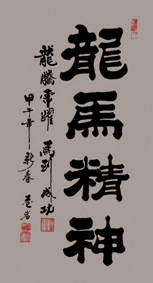 龍馬精神
龍騰軍躍 馬到成功
甲午年新春